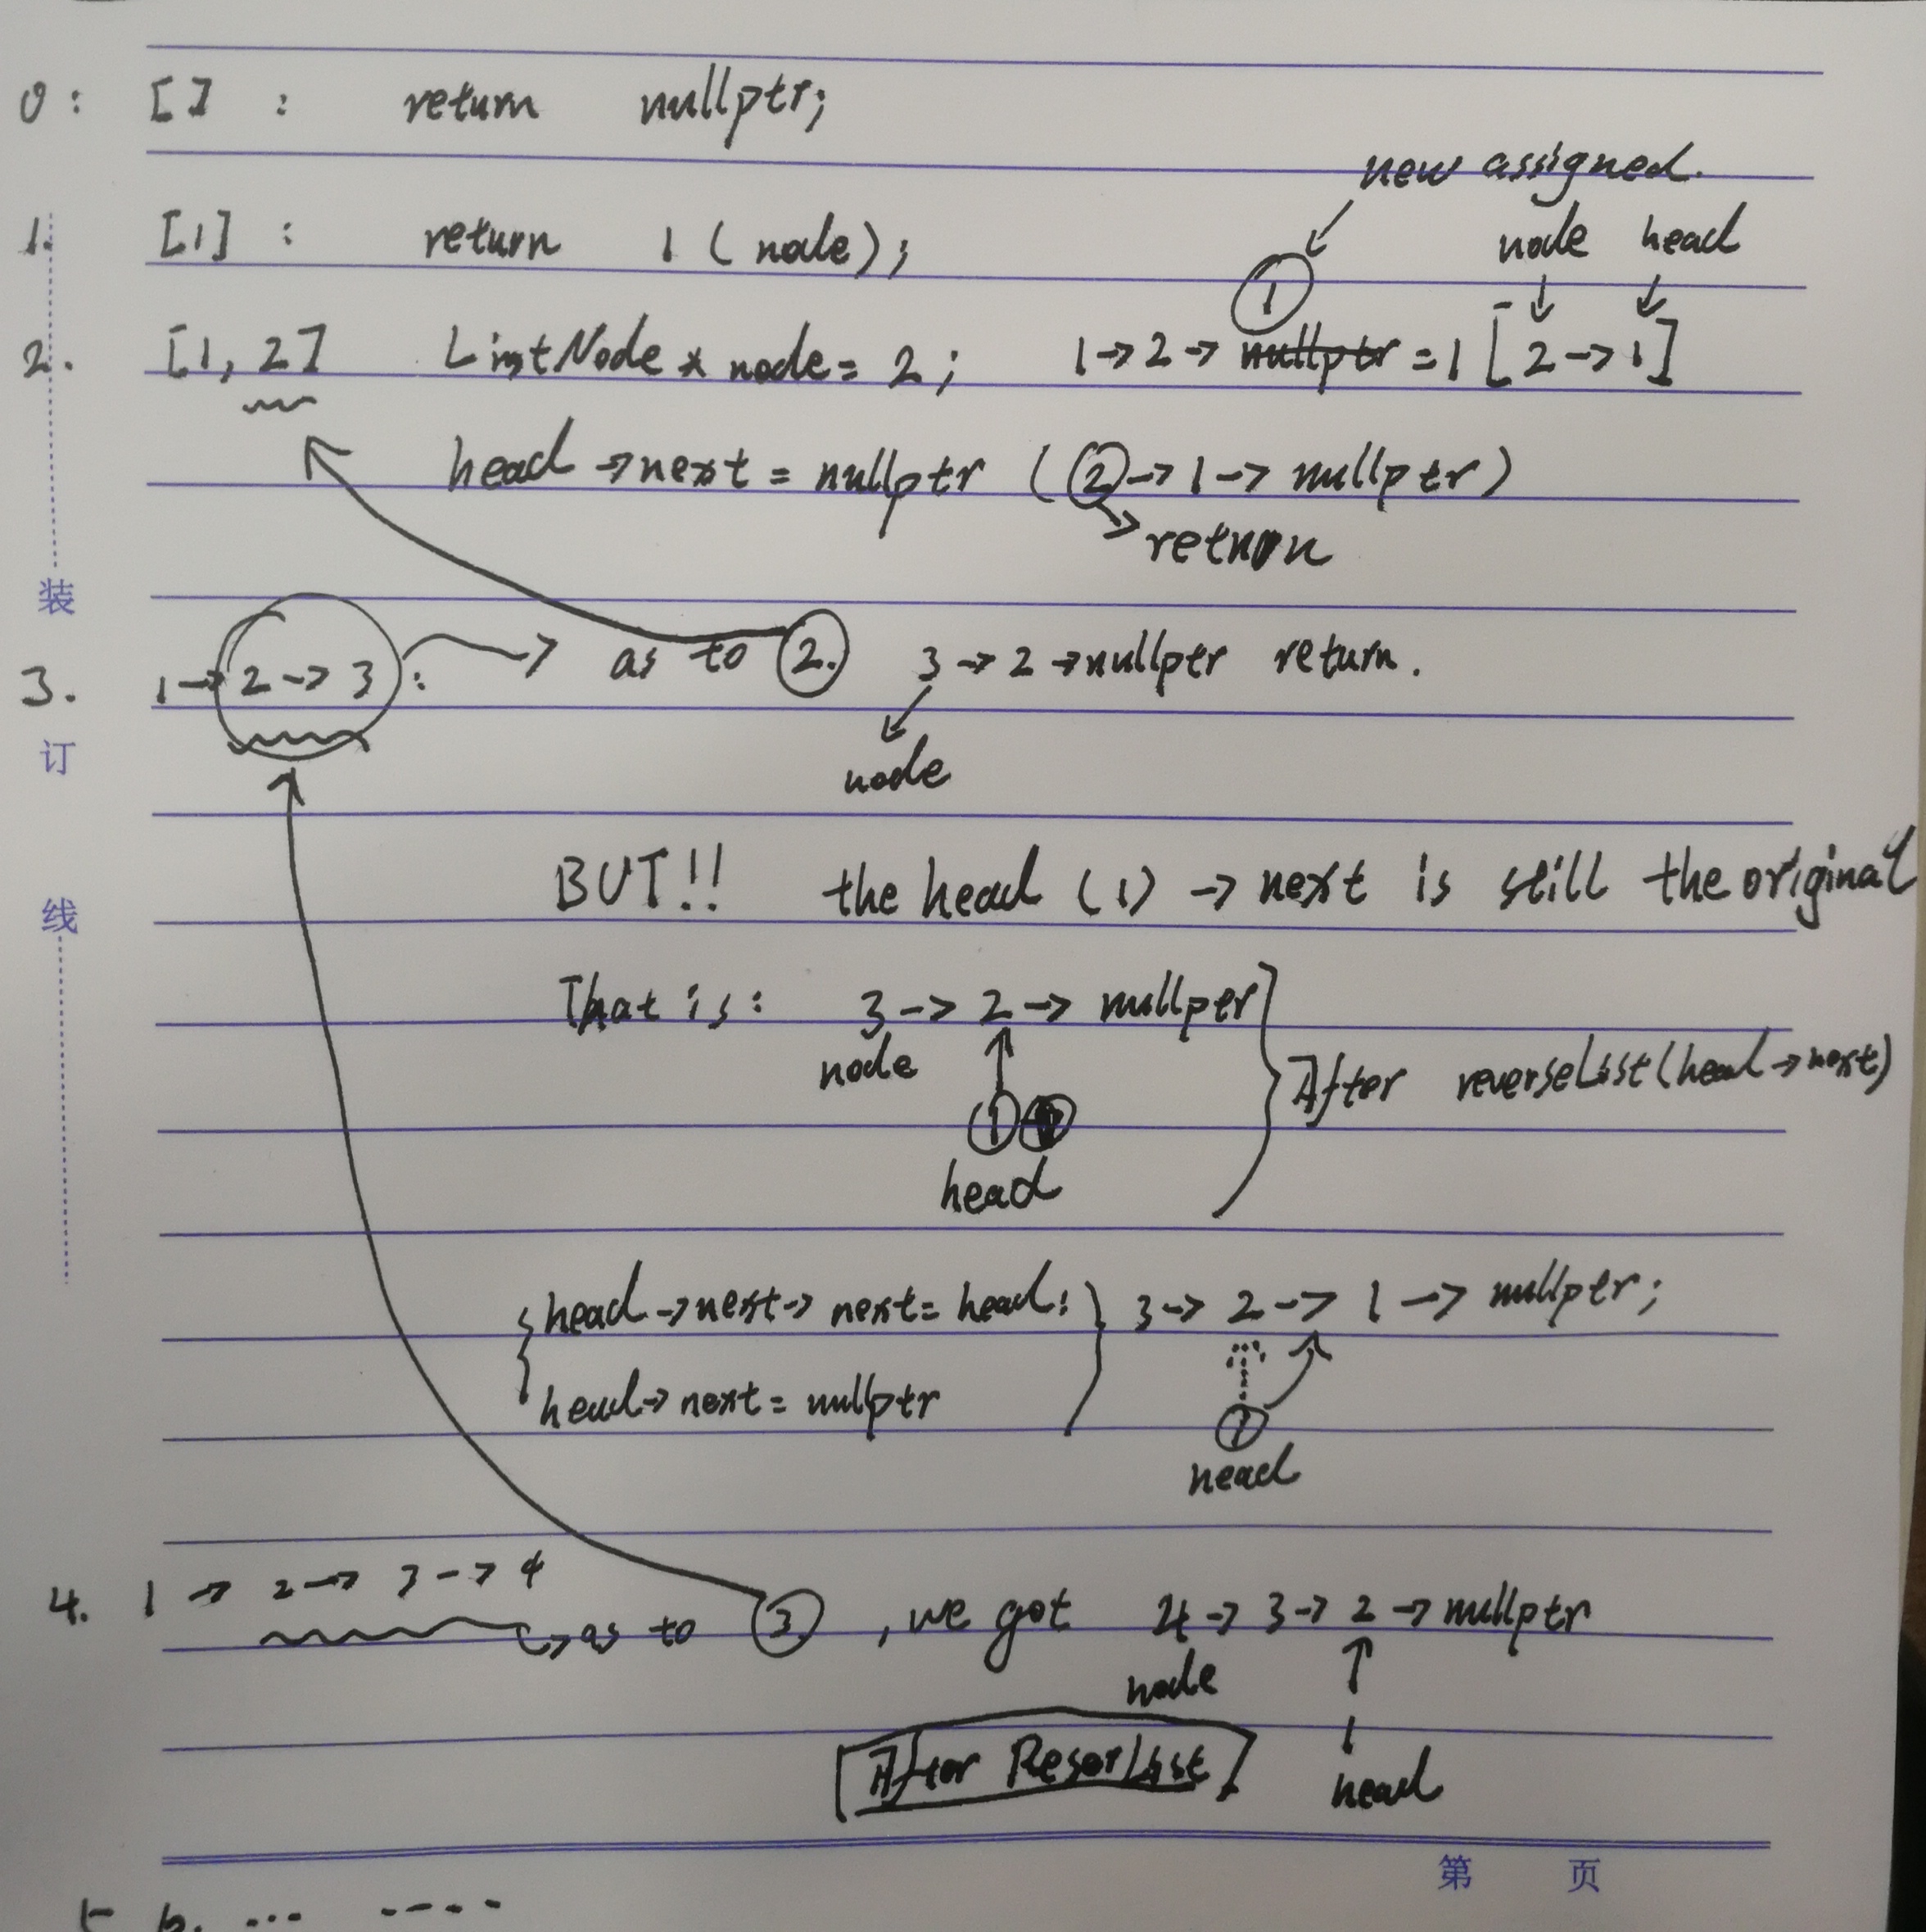 0: [] : return nullptr;
new assigned.
1. [1] : return 1 (node);
node head
1
2. [1, 2] ListNode * node = 2; 1 -> 2 -> nullptr = 1 [2 -> 1]
head -> next = nullptr (2 -> 1 -> nullptr)
return
装
3. 1 -> 2 -> 3 : as to 2. 3 -> 2 -> nullptr return.
订
node
BUT!! the head (1) -> next is still the original
线
That is: 3 -> 2 -> nullptr
node
After reverseList(head -> next)
1
head
head -> next -> next = head; 3 -> 2 -> 1 -> nullptr;
head -> next = nullptr
1
head
4. 1 -> 2 -> 3 -> 4
as to 3. , we got 4 -> 3 -> 2 -> nullptr
node
After
head
第 页
... ----